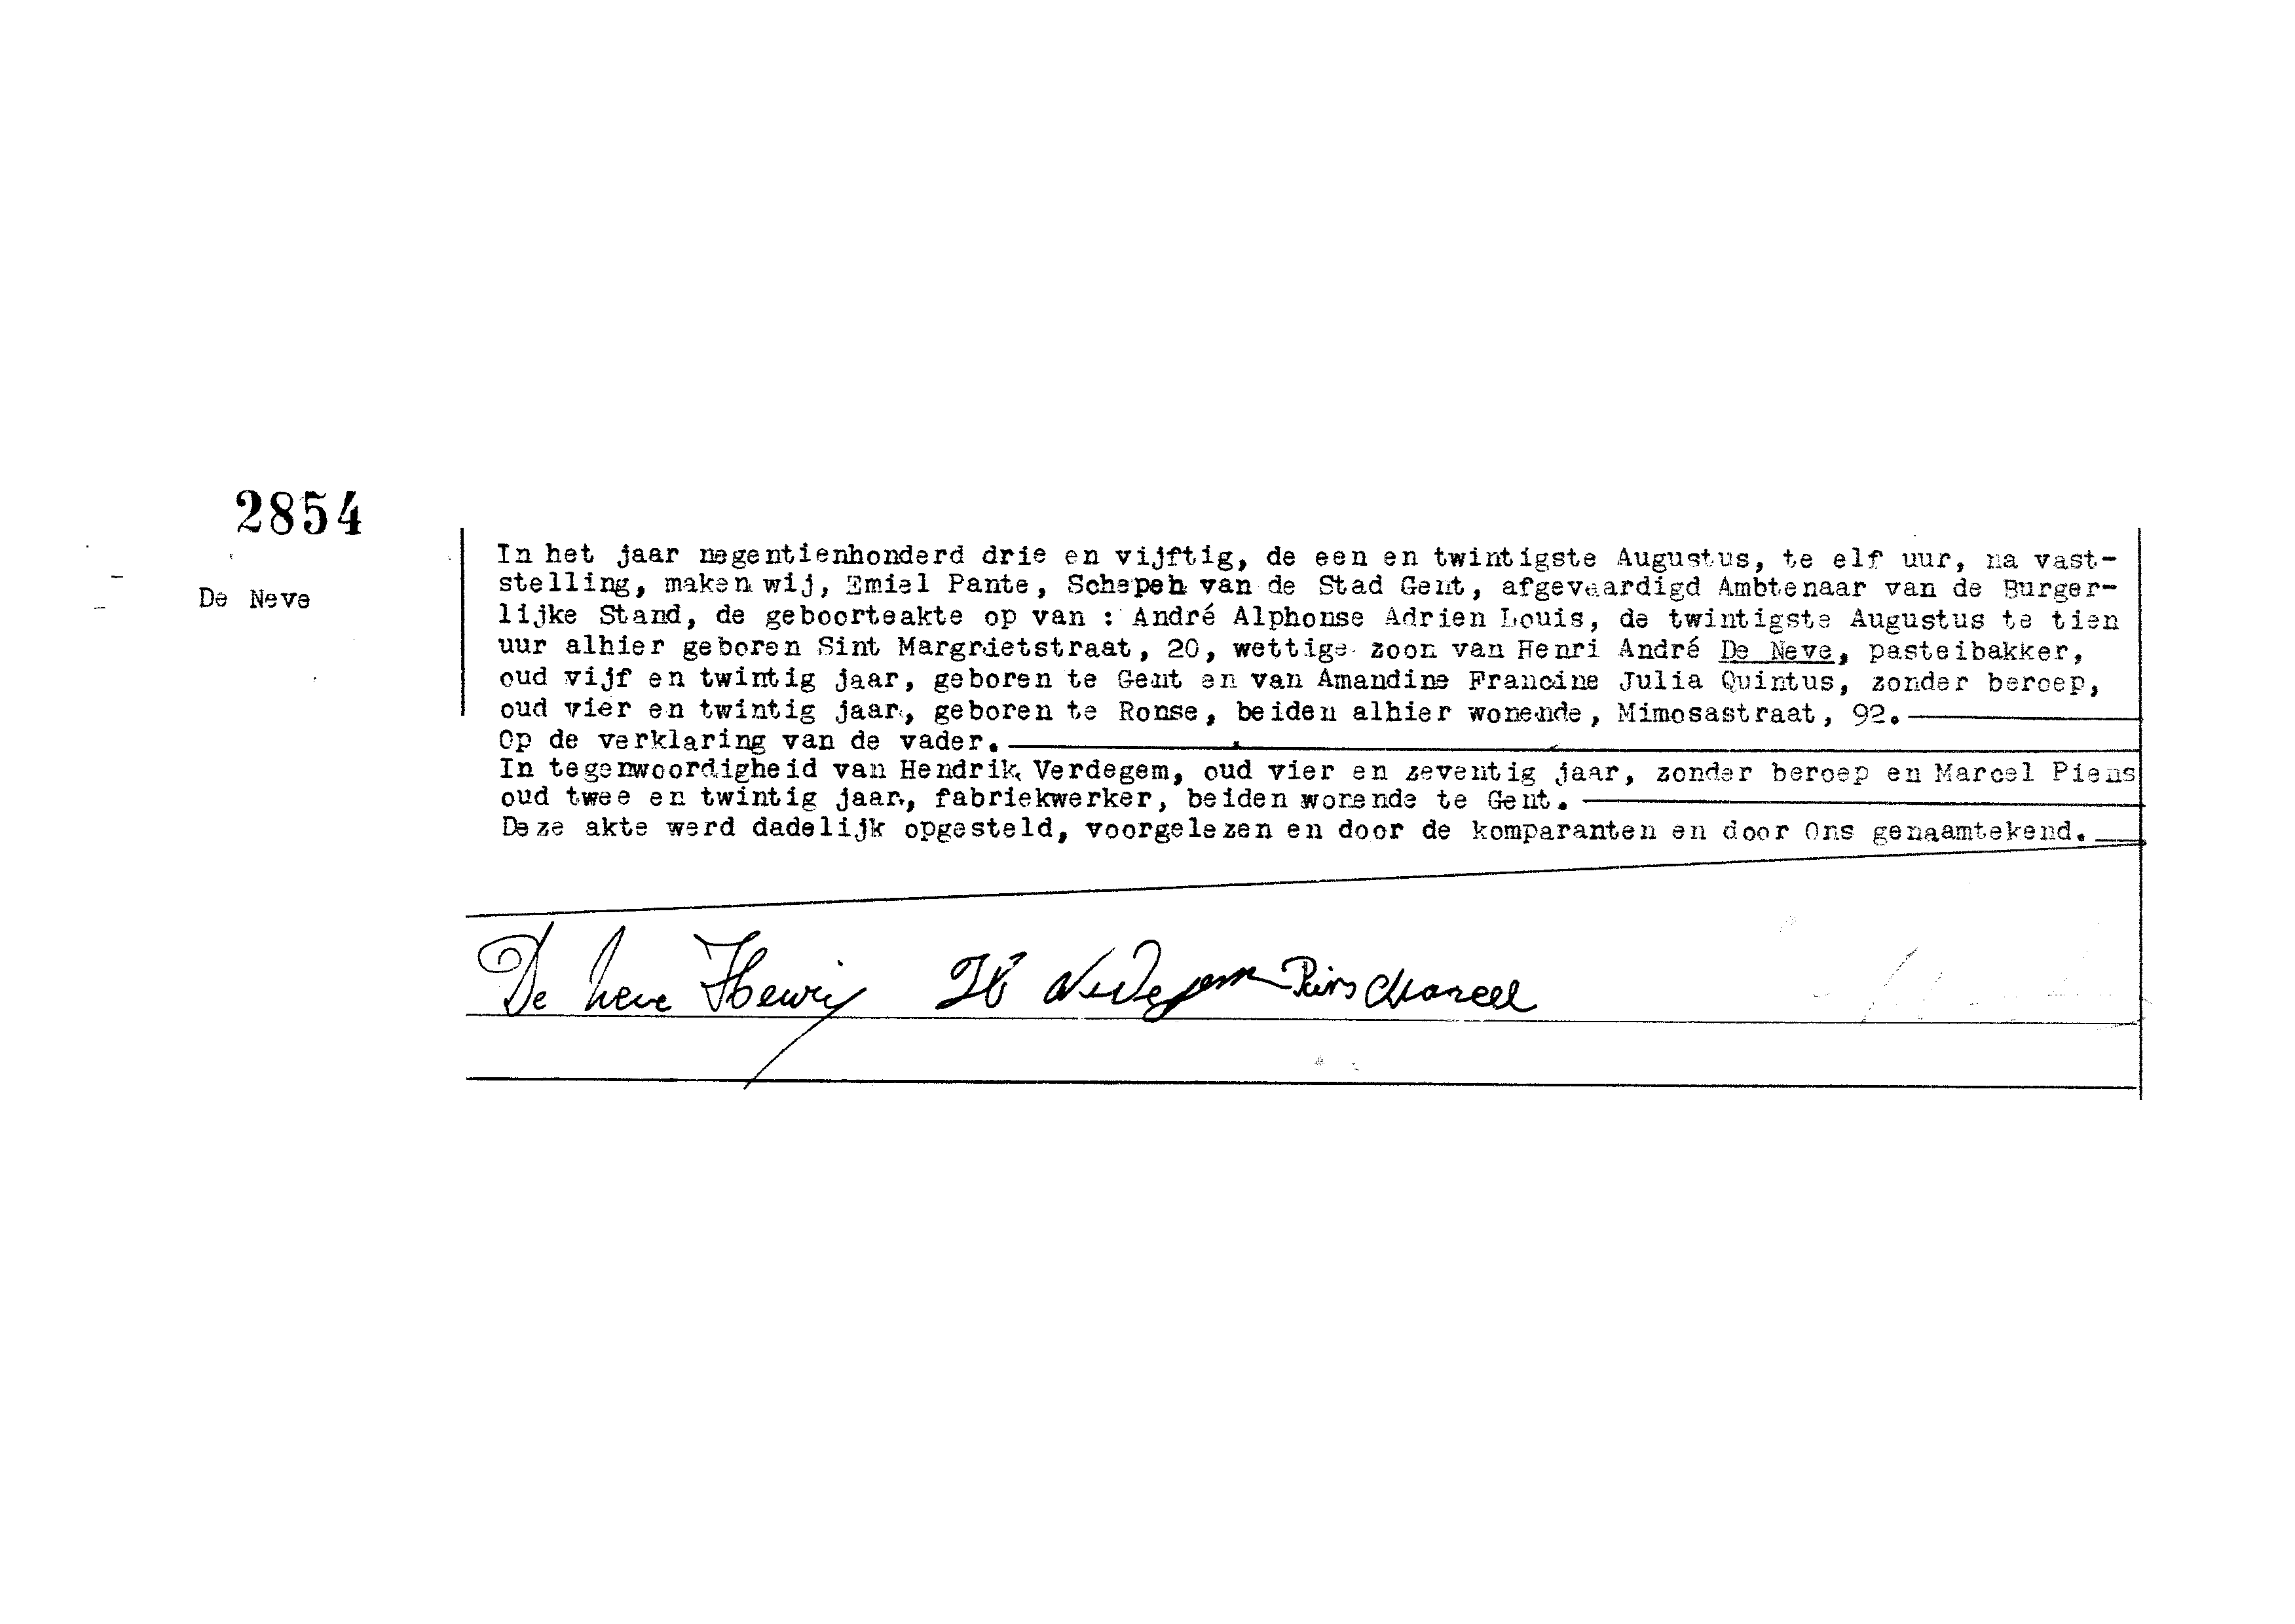 2854
De Neve
In het jaar negentienhonderd drie en vijftig, de een en twintigste Augustus, te elf uur, na vast-
stelling, maken wij, Emiel Pante, Schepen van de Stad Gent, afgevaardigd Ambtenaar van de Burger-
lijke Stand, de geboorteakte op van : André Alphonse Adrien Louis, de twintigste Augustus te tien
uur alhier geboren Sint Margrietstraat, 20, wettige zoon van Henri André De Neve, pasteibakker,
oud vijf en twintig jaar, geboren te Gent en van Amandine Francine Julia Quintus, zonder beroep,
oud vier en twintig jaar, geboren te Ronse, beiden alhier wonende, Mimosastraat, 92.
Op de verklaring van de vader.
In tegenwoordigheid van Hendrik Verdegem, oud vier en zeventig jaar, zonder beroep en Marcel Piens
oud twee en twintig jaar, fabriekwerker, beiden wonende te Gent.
Deze akte werd dadelijk opgesteld, voorgelezen en door de komparanten en door Ons genaamtekend.
De Neve Henri H Verdegem Piens Marcel